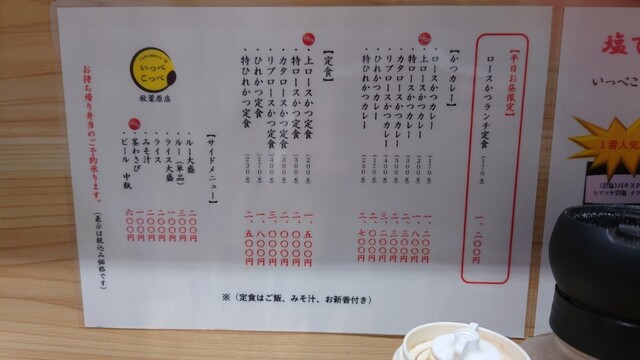 【平日お昼限定】
ロースかつランチ定食(170g) 一、二〇〇円
【かつカレー】
・ロースかつカレー (170g) 一、二〇〇円
・上ロースかつカレー (200g) 一、八〇〇円
・特ロースかつカレー (300g) 二、三〇〇円
・カタロースかつカレー (300g) 二、三〇〇円
・リブロースかつカレー (400g) 三、三〇〇円
・ひれかつカレー (170g) 二、〇〇〇円
・特ひれかつカレー (230g) 二、七〇〇円
【定食】
・上ロースかつ定食 (200g) 一、五〇〇円
・特ロースかつ定食 (300g) 二、〇〇〇円
・カタロースかつ定食 (300g) 二、〇〇〇円
・リブロースかつ定食 (400g) 三、〇〇〇円
・ひれかつ定食 (170g) 一、八〇〇円
・特ひれかつ定食 (230g) 二、五〇〇円
【サイドメニュー】
・ルー大盛 二〇〇円
・ルー(単品) 三〇〇円
・ライス大盛 一〇〇円
・ライス 二〇〇円
・みそ汁 二〇〇円
・茎わさび 一〇〇円
・ビール 中瓶 六〇〇円
いっぺこっぺ
秋葉原店
お持ち帰り弁当のご予約承ります。
(表示は税込み価格です)
※(定食はご飯、みそ汁、お新香付き)
塩
いっぺこ
1番人気